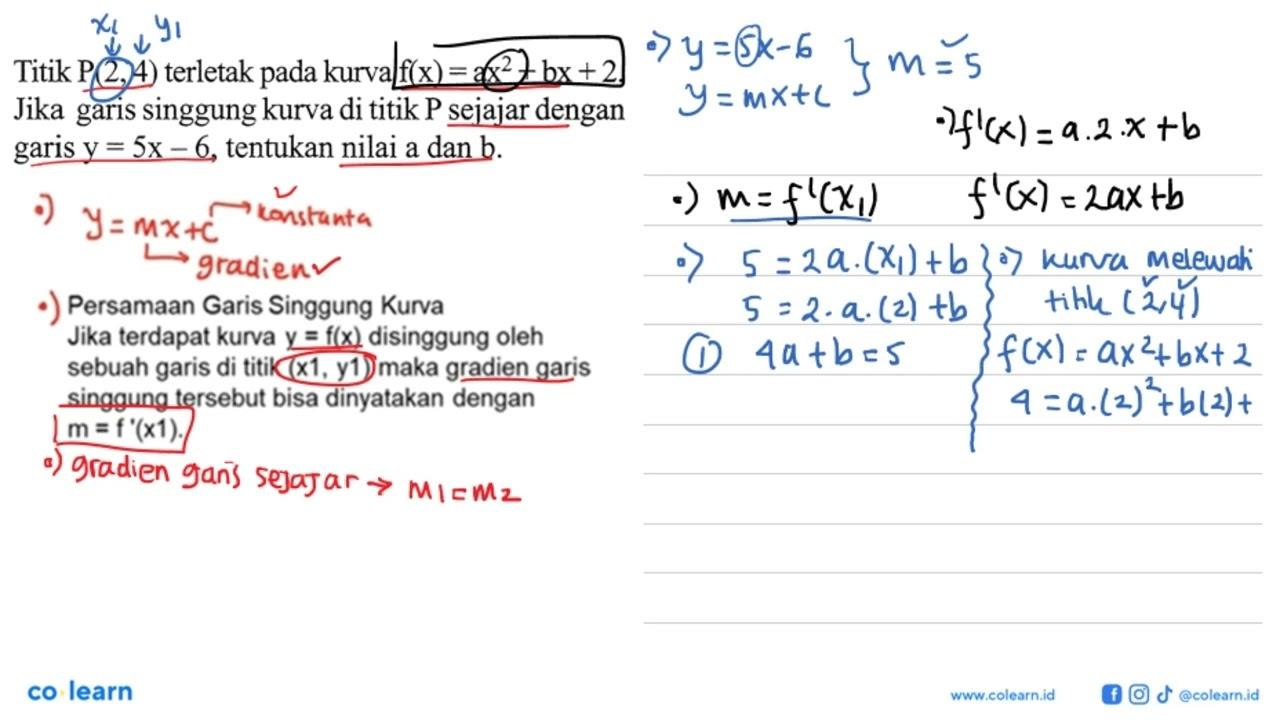 x1 y1
Titik P(2, 4) terletak pada kurva f(x) = ax² + bx + 2.
Jika garis singgung kurva di titik P sejajar dengan
garis y = 5x – 6, tentukan nilai a dan b.
•) y = mx+c → konstanta
→ gradien
•) Persamaan Garis Singgung Kurva
Jika terdapat kurva y = f(x) disinggung oleh
sebuah garis di titik (x1, y1) maka gradien garis
singgung tersebut bisa dinyatakan dengan
m = f '(x1).
•) gradien garis sejajar → m1 = m2
•) y = 5x-6 } m = 5
y = mx+c
•) f'(x) = a.2.x + b
•) m = f'(x1) f'(x) = 2ax+b
•) 5 = 2a.(x1)+b
5 = 2.a.(2)+b
① 4a+b=5
•) kurva melewati
titik (2,4)
f(x) = ax²+bx+2
4 = a.(2)²+b(2)+
co learn
www.colearn.id
@colearn.id